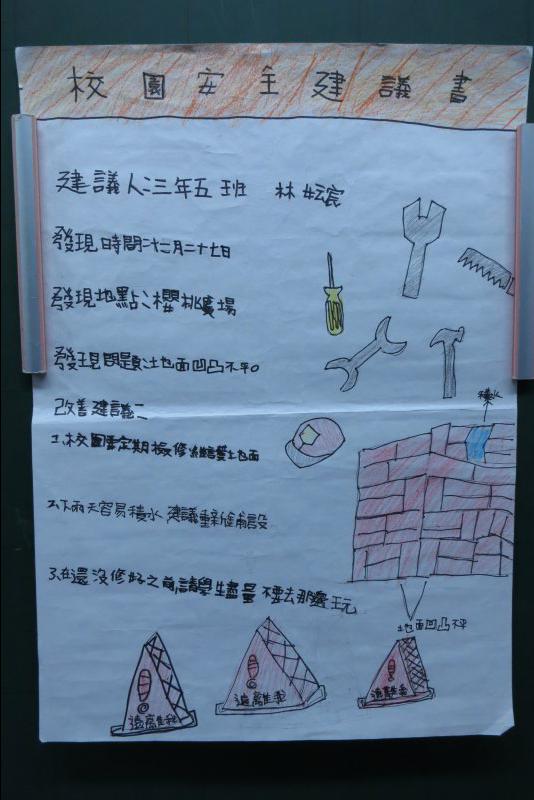 校園安全建議書
建議人:三年五班 林妘宸
發現時間:十二月二十七日
發現地點:櫻桃廣場
發現問題:地面凹凸不平。
改善建議:
積水
1.校園要定期檢修維護地面
2.下雨天容易積水,建議重新鋪設
3.在還沒修好之前,請學生盡量不要去那邊玩
地面凹凸不平
遠離我
遠離我
遠離我